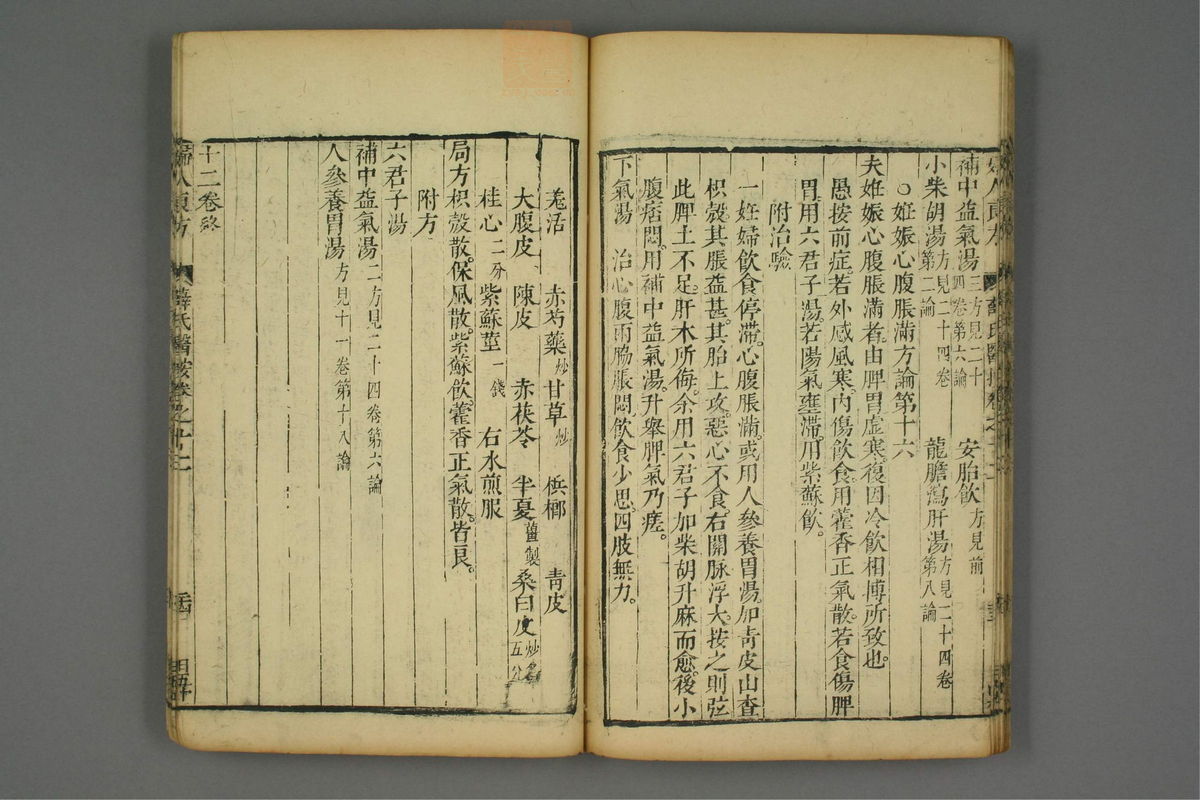 補中益氣湯三方見二十四卷第六論　安胎飲方見前
小柴胡湯方見二十四卷第二論　龍膽瀉肝湯方見二十四卷第八論
○妊娠心腹脹滿方論第十六
夫妊娠心腹脹滿者由脾胃虛寒復因冷飲相搏所致也
愚按前症若外感風寒內傷飲食用藿香正氣散若食傷脾
胃用六君子湯若陽氣壅滯用紫蘇飲
附治驗
一妊婦飲食停滯心腹脹滿或用人參養胃湯加青皮山查
枳殼其脹益甚其胎上攻惡心不食右關脈浮大按之則弦
此脾土不足肝木所侮余用六君子加柴胡升麻而愈後小
腹痞悶用補中益氣湯升舉脾氣乃瘥
下氣湯　治心腹兩脇脹悶飲食少思四肢無力
羗活　赤芍藥炒　甘草炒　梹榔　青皮
大腹皮　陳皮　赤茯苓　半夏薑製　桑白皮炒各五分
桂心二分　紫蘇莖一錢　右水煎服
局方枳殼散保風散紫蘇飲藿香正氣散皆良
附方
六君子湯
補中益氣湯二方見二十四卷第六論
人參養胃湯方見十一卷第十八論
十二卷終
婦人良方　薛氏醫按卷之十二